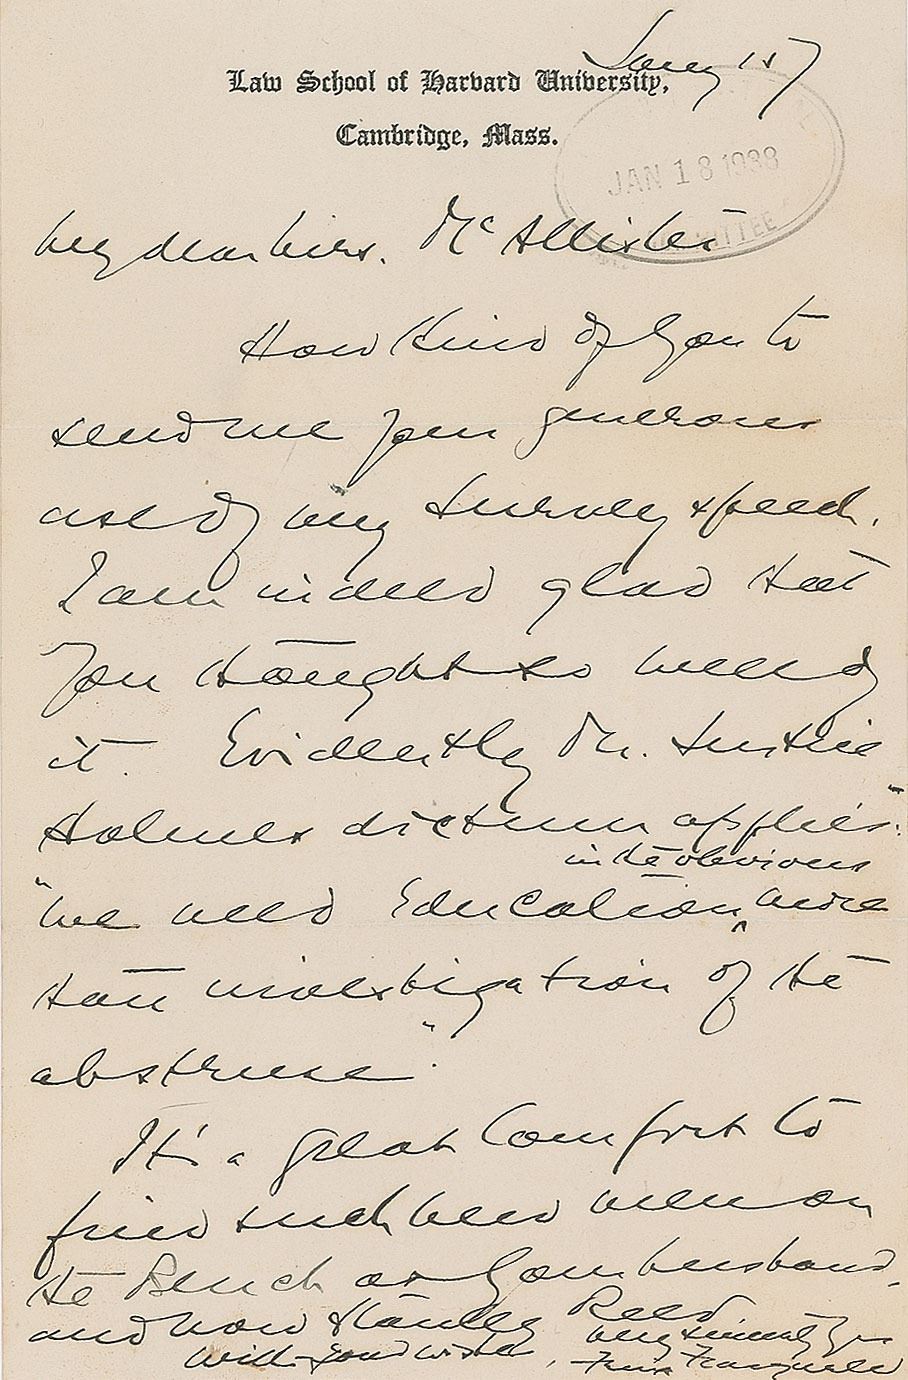 Jany 17
Law School of Harvard University,
Cambridge, Mass.
JAN 18 1938
My dear Mrs. McAllister
How kind of you to
send me your generous
of my Survey speech.
I am indeed glad that
you thought so well of
it. Evidently Mr. Justice
Holmes dictum applies:
in the obvious
"We need Education more
than investigation of the
abstruse".
It's a great comfort to
find such men on
the Bench as your husband,
and now Stanley Reed
With good wishes, Very sincerely yrs
Felix Frankfurter